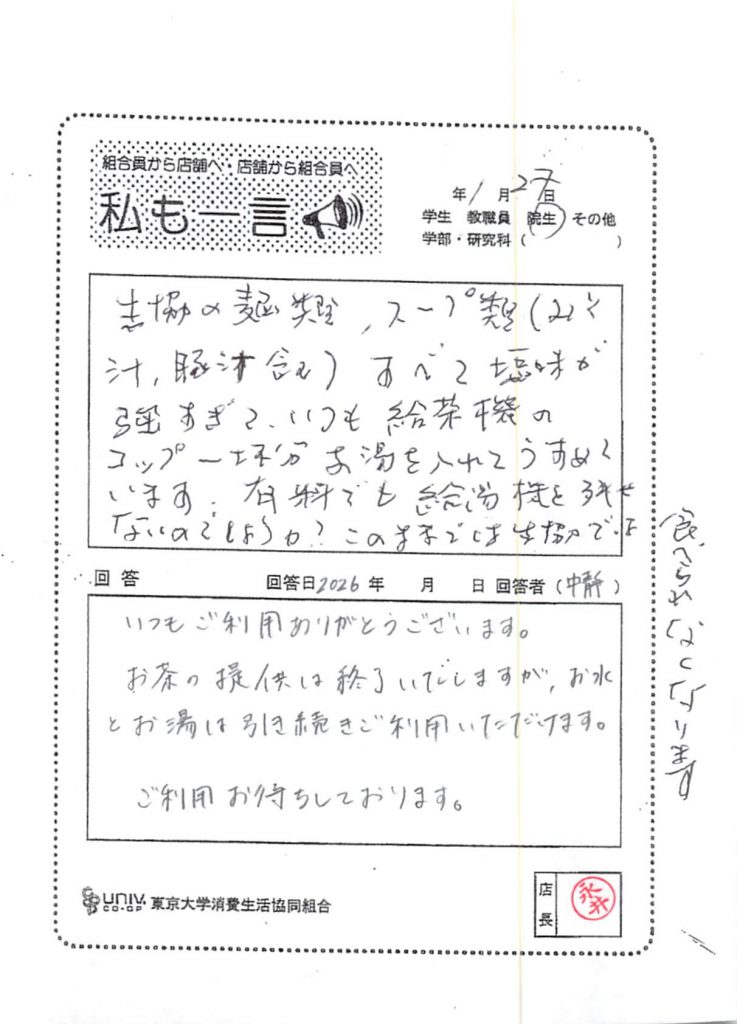 組合員から店舗へ・店舗から組合員へ
私も一言
年 1 月 27 日
学生 教職員 院生 その他
学部・研究科 ( )
生協の麺類、スープ類(みそ
汁、豚汁含む)すべて塩味が
強すぎて、いつも給茶機の
コップ一杯分お湯を入れてうすめて
います。有料でも給湯機を残せ
ないのでしょうか?このままでは生協では
食べられなくなります
回答 回答日2026年 月 日 回答者(中静)
いつもご利用ありがとうございます。
お茶の提供は終了いたしますが、お水
とお湯は引き続きご利用いただけます。
ご利用お待ちしております。
UNIV.
CO-OP 東京大学消費生活協同組合
店長